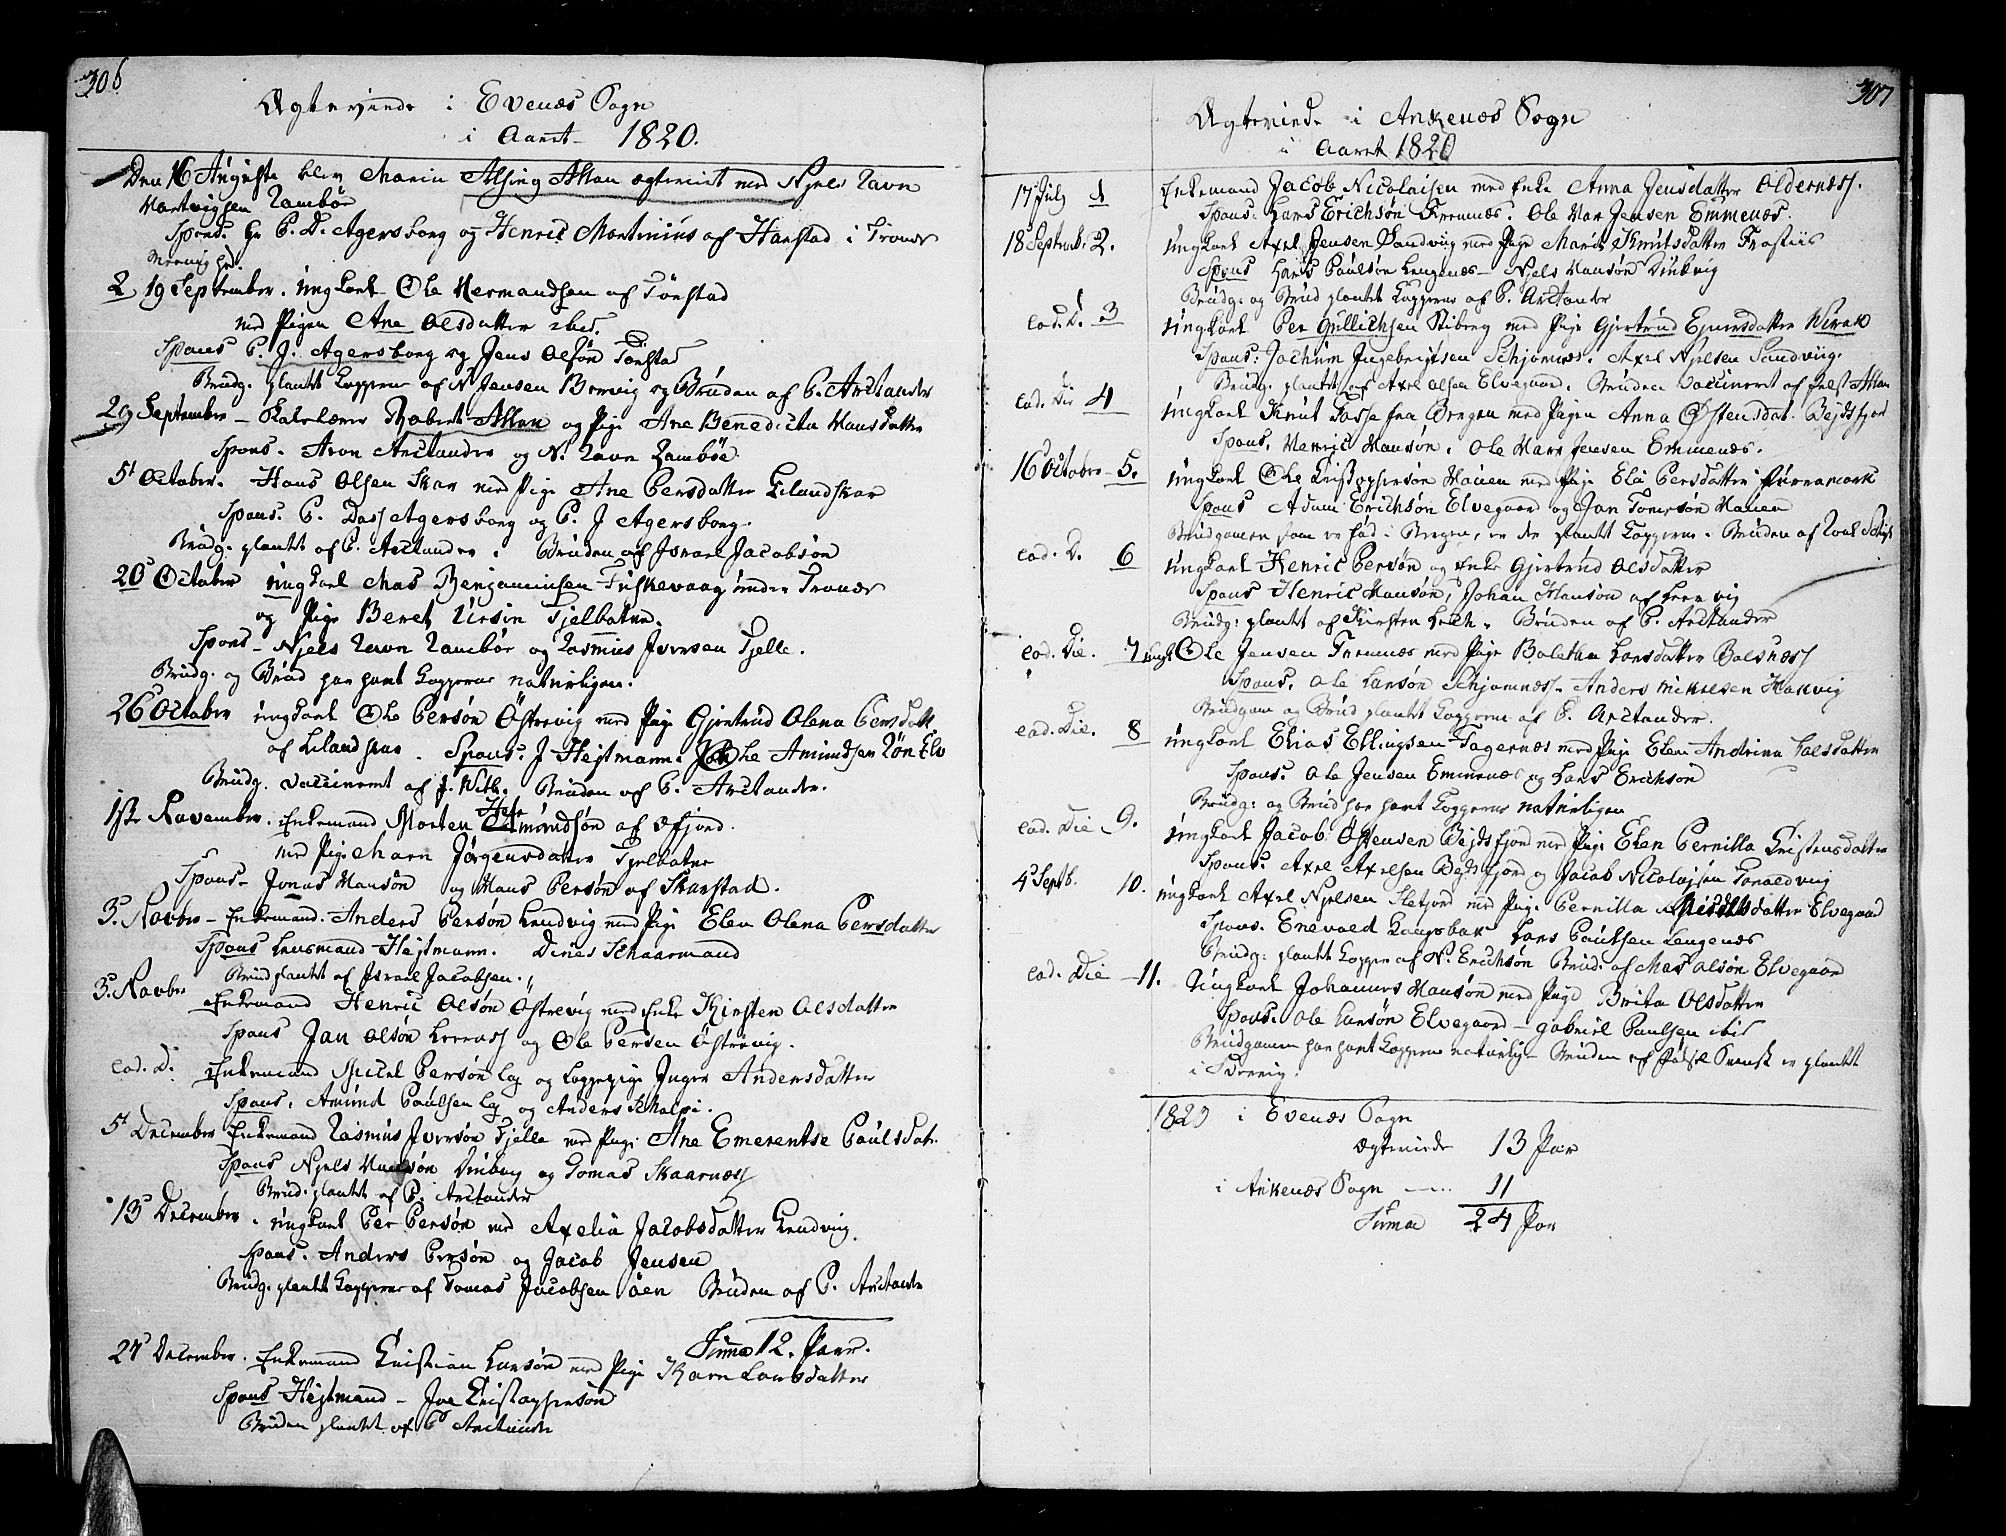 306
Ægteviede i Evenæs Sogn
i Aaret 1820.
Den 16 Augusti blev Maria Alsing Allan ægteviet med Njels Ravn
Hartvigsen Ramböe
Spons. Hr P. D. Agersborg og Henric Martinius af Harstad i Tronæs
2 19 September. ungkarl Ole Hermandsen af Törstad
med Pigen Ane Olsdatter ibid.
Spons P. J. Agersborg og Jens Olsön Törstad
Brudg. plantet Kopperne af N Jensen Bervig og Bruden af P. Arctander
29 September – Robert Allan og Pige Ane Benedicta Hansdatter
Spons. Aron Arctander og N. Ravn Ramböe
5t October. Hans Olsen Skar med Pige Ane Persdatter Lilandskar
Spons. P. Dass Agersborg og P. J Agersborg.
Brudg. plantet af P. Arctander. Bruden af Israel Jacobsön
20 October ungkarl Mas Benjaminsen Fiskevaag under Tronæs
og Pige Beret Ursin Fjelbotn.
Spons – Njels Ravn Ramböe og Rasmus Iversen Tjelle.
Brudg. og Brud har havt Kopperne naturligen.
26 October ungkarl Ole Persön Östervig med Pige Gjertrud Olena Persdatt
af Liland. Spons. J Hejtmann. Ole Amundsen
Brudg. vaccineret af J. Bruden af P. Arctander.
1ste November. Enkemand Morten Amundsön af Æfjord.
med Pige Maren Jörgensdatter Fjelbotn
Spons – Jonas Hansön og Hans Persön af Skarstad.
3. Novbr – Enkemand. Anders Persön Lendvig med Pige Elen Olena Persdatter
Spons Lensmand Hejtmann. Dines Skaarmand
Brud plantet af Israel Jacobsen.
3. Novbr
Enkemand Henric Olsön Östervig med Enke Kirsten Olsdatter
Spons Jan Olsön og Ole Persen Östervig.
eod. D. Enkemand Persön og Inger Andersdatter
Spons. Amund Paulsen og Anders Skalpi.
5t December Enkemand Rasmus Iversön Tjelle med Pige Ane Emerentse Paulsdatr.
Spons Njels Hansön og Tomas Skaarnæs
Brud. plantet af P. Arctander
13 December. ungkarl Per Persön med Axelia Jacobsdatter Lendvig.
Spons. Anders Persön og Jacob Jensen
Brudg. plantet Kopperne af Tomas Jacobsen Öen Bruden af P. Arctander
Suma 12. Parr.
27 December. Enkemand Kristian Larsön med Pige Karen Larsdatter
Spons Hejtmand – Kristophersön
Bruden plantet af P Arctander
307
Ægteviede i Ankenæs Sogn
i Aaret 1820
17 July 1 Enkemand Jacob Nicolaisen med Enke Anna Jensdatter Oldernæss.
Spons: Lars Erichsön. Ole Mar Jensen Emmenæs.
18 September 2. ungkarl Axel Jensen Sandvig med Pige Marit Knutsdatter
Spons Hans Paulsön Lengenæs – Njels Hansön
Brudg: og Brud plantet Kopperne af P. Arctander
eod. D. 3 ungkarl Per Gullichsen Stiberg med Pige Gjertrud Ejnersdatter
Spons: Jochum Ingebrigtsen Schjomnæs. Axel Njelsen Sandviig.
Brudg. plantet af Axel Olsen Elvegaard. Bruden vaccineret af Allan
eod. Die 4 ungkarl Knut Tosse fra Bergen med Pigen Anna Östensdat. Bejdsfjord
Spons. Henric Hansön. Ole Mar Jensen Emmenæs.
16 October – 5. ungkarl Ole Kristophersön med Pige Eli Persdatter
Spons Adam Erichsön Elvegaard og Jan Tomesön
Brudgomen som er föd i Bergen, er der plantet Kopperne. Bruden af
eod. D. 6 ungkarl Henric Persön og Enke Gjertrud Olsdatter
Spons Henric Hansön, Johan Hansön af
Brudg: plantet af Kirsten. Bruden af P. Arctander
eod. Die. 7 ungk. Ole Jensen med Pige Boletha Larsdatter Bolsnæss
Spons. Ole Larsön Schjomnæs – Anders Mikelsen Hakvig
Brudgom og Brud plantet Kopperne af P. Arctander.
eod. Die. 8 ungkarl Elias Ellingsen Fagernæs med Pige Elen Andrina
Spons: Ole Jensen Emmenæs og Lars Erichsön
Brudg: og Brud har havt Kopperne naturligen
eod. Die 9. ungkarl Jacob Östensen Bejdsfjord med Pige Elen Pernilla Kristensdatter
Spons. Axel Axelsen Bejdsfjord og Jacob Nicolajsen
4 Septb. 10. ungkarl Axel Njelsen med Pige Pernilla Elvegaard
Spons. Enevold Lars Paulsen Lengenæs
Brudg: plantet Kopper af N. Erichsön Brud. af Mas Olsön Elvegaard
eod. Die – 11. Ungkarl Johannes Hansön med Pige Brita Olsdatter
Spons. Ole Larsön Elvegaard – Gabriel Paulsen ibid
Brudgomen har havt Kopperne naturlig – Bruden af födsel Svensk er plantet
i Sverrig.
1820 i Evenæs Sogn
Ægteviede 13 Par
i Ankenæs Sogn 11
Suma 24 Par